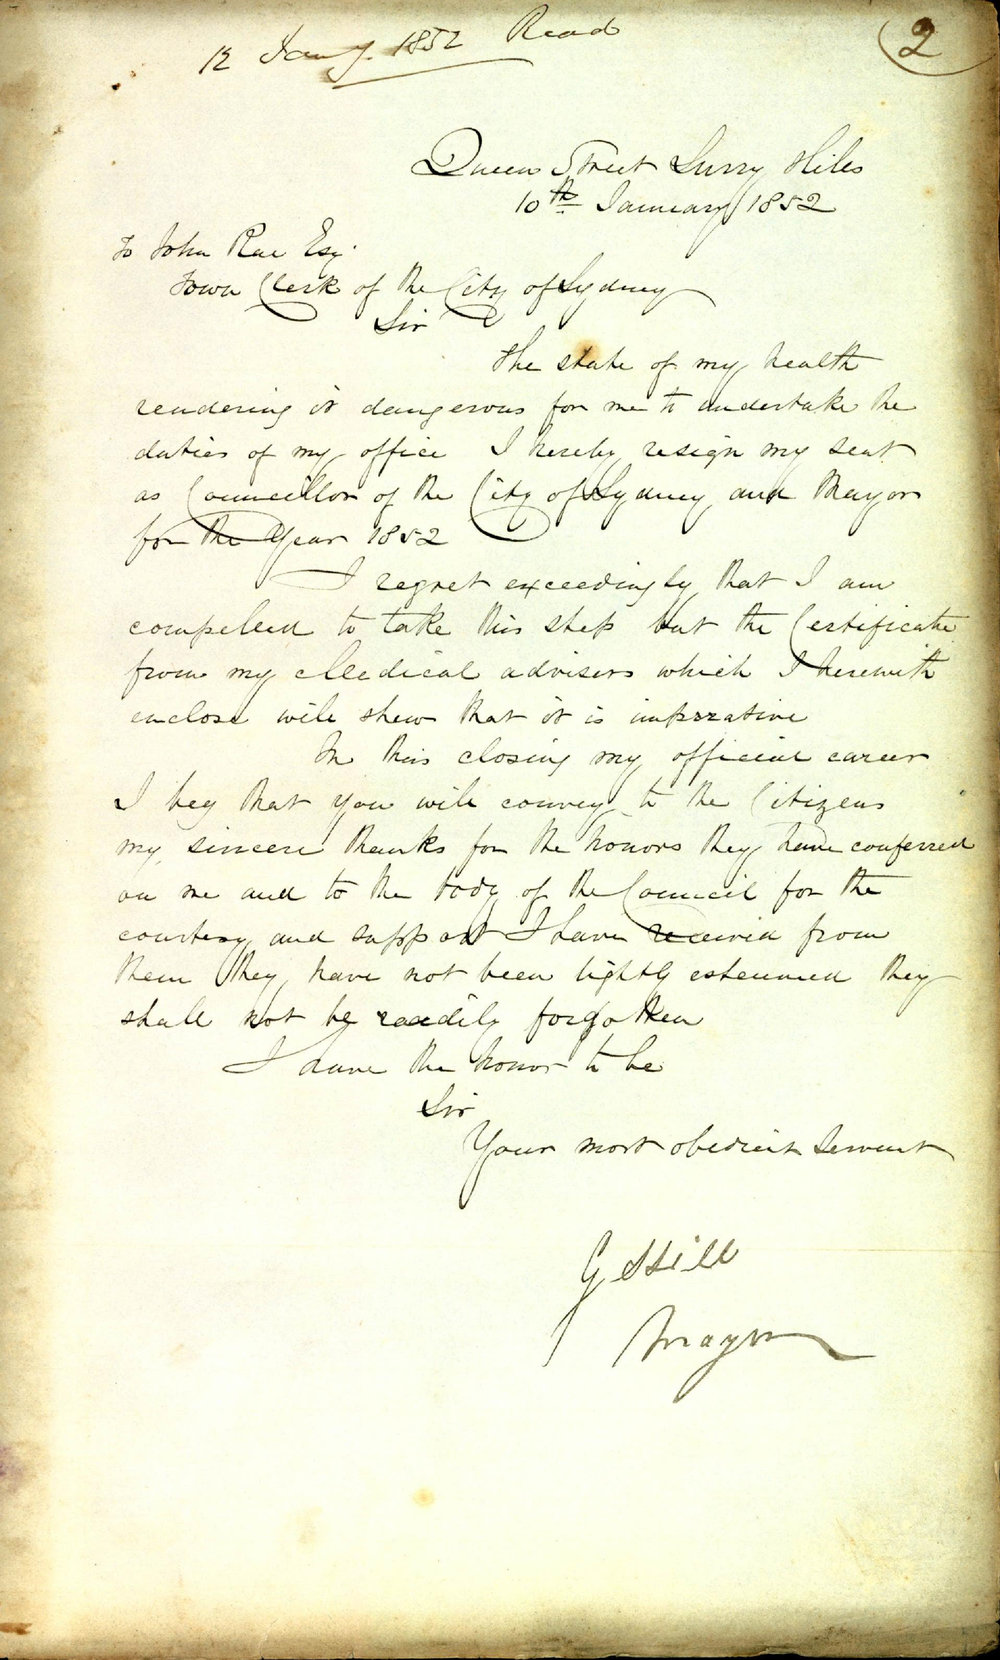 12 Jany. 1852 Read
2
Queen Street Surry Hills
10th January 1852
To John Rae Esq.
Town Clerk of the City of Sydney
Sir
The state of my health
rendering it dangerous for me to undertake the
duties of my office I hereby resign my seat
as Councillor of the City of Sydney and Mayor
for the Year 1852
I regret exceedingly that I am
compelled to take this step but the Certificate
from my Medical advisers which I herewith
enclose will shew that it is imperative
In this closing my official career
I beg that you will convey to the Citizens
my sincere thanks for the honors they have conferred
on me and to the body of the Council for the
courtesy and support I have received from
them they have not been lightly esteemed they
shall not be readily forgotten
I have the honor to be
Sir
Your most obedient servant
G Hill
Mayor